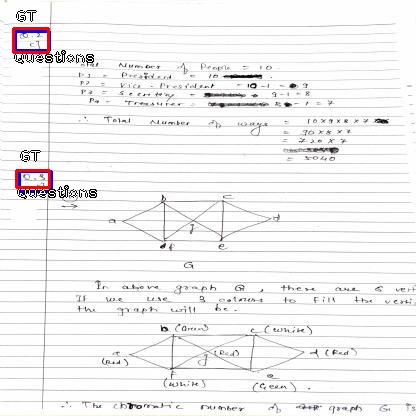 GT
Q.2
c]
Questions
Total Number of People = 10.
P1 = President = 10
P2 = Vice-President = 10-1 = 9
P3 = Secretary = 9-1 = 8
P4 = Treasurer = 8-1 = 7
∴ Total Number of ways = 10×9×8×7
= 90×8×7
= 720×7
= 5040
GT
Q.3
Questions
→
b c
a g d
f e
G
In above graph G, there are 6 verti
If we use 3 colours to fill the verti
the graph will be.
b (Green) c (White)
(Red) g (Red) d (Red)
f e
(White) (Green).
∴ The chromatic number of graph G is